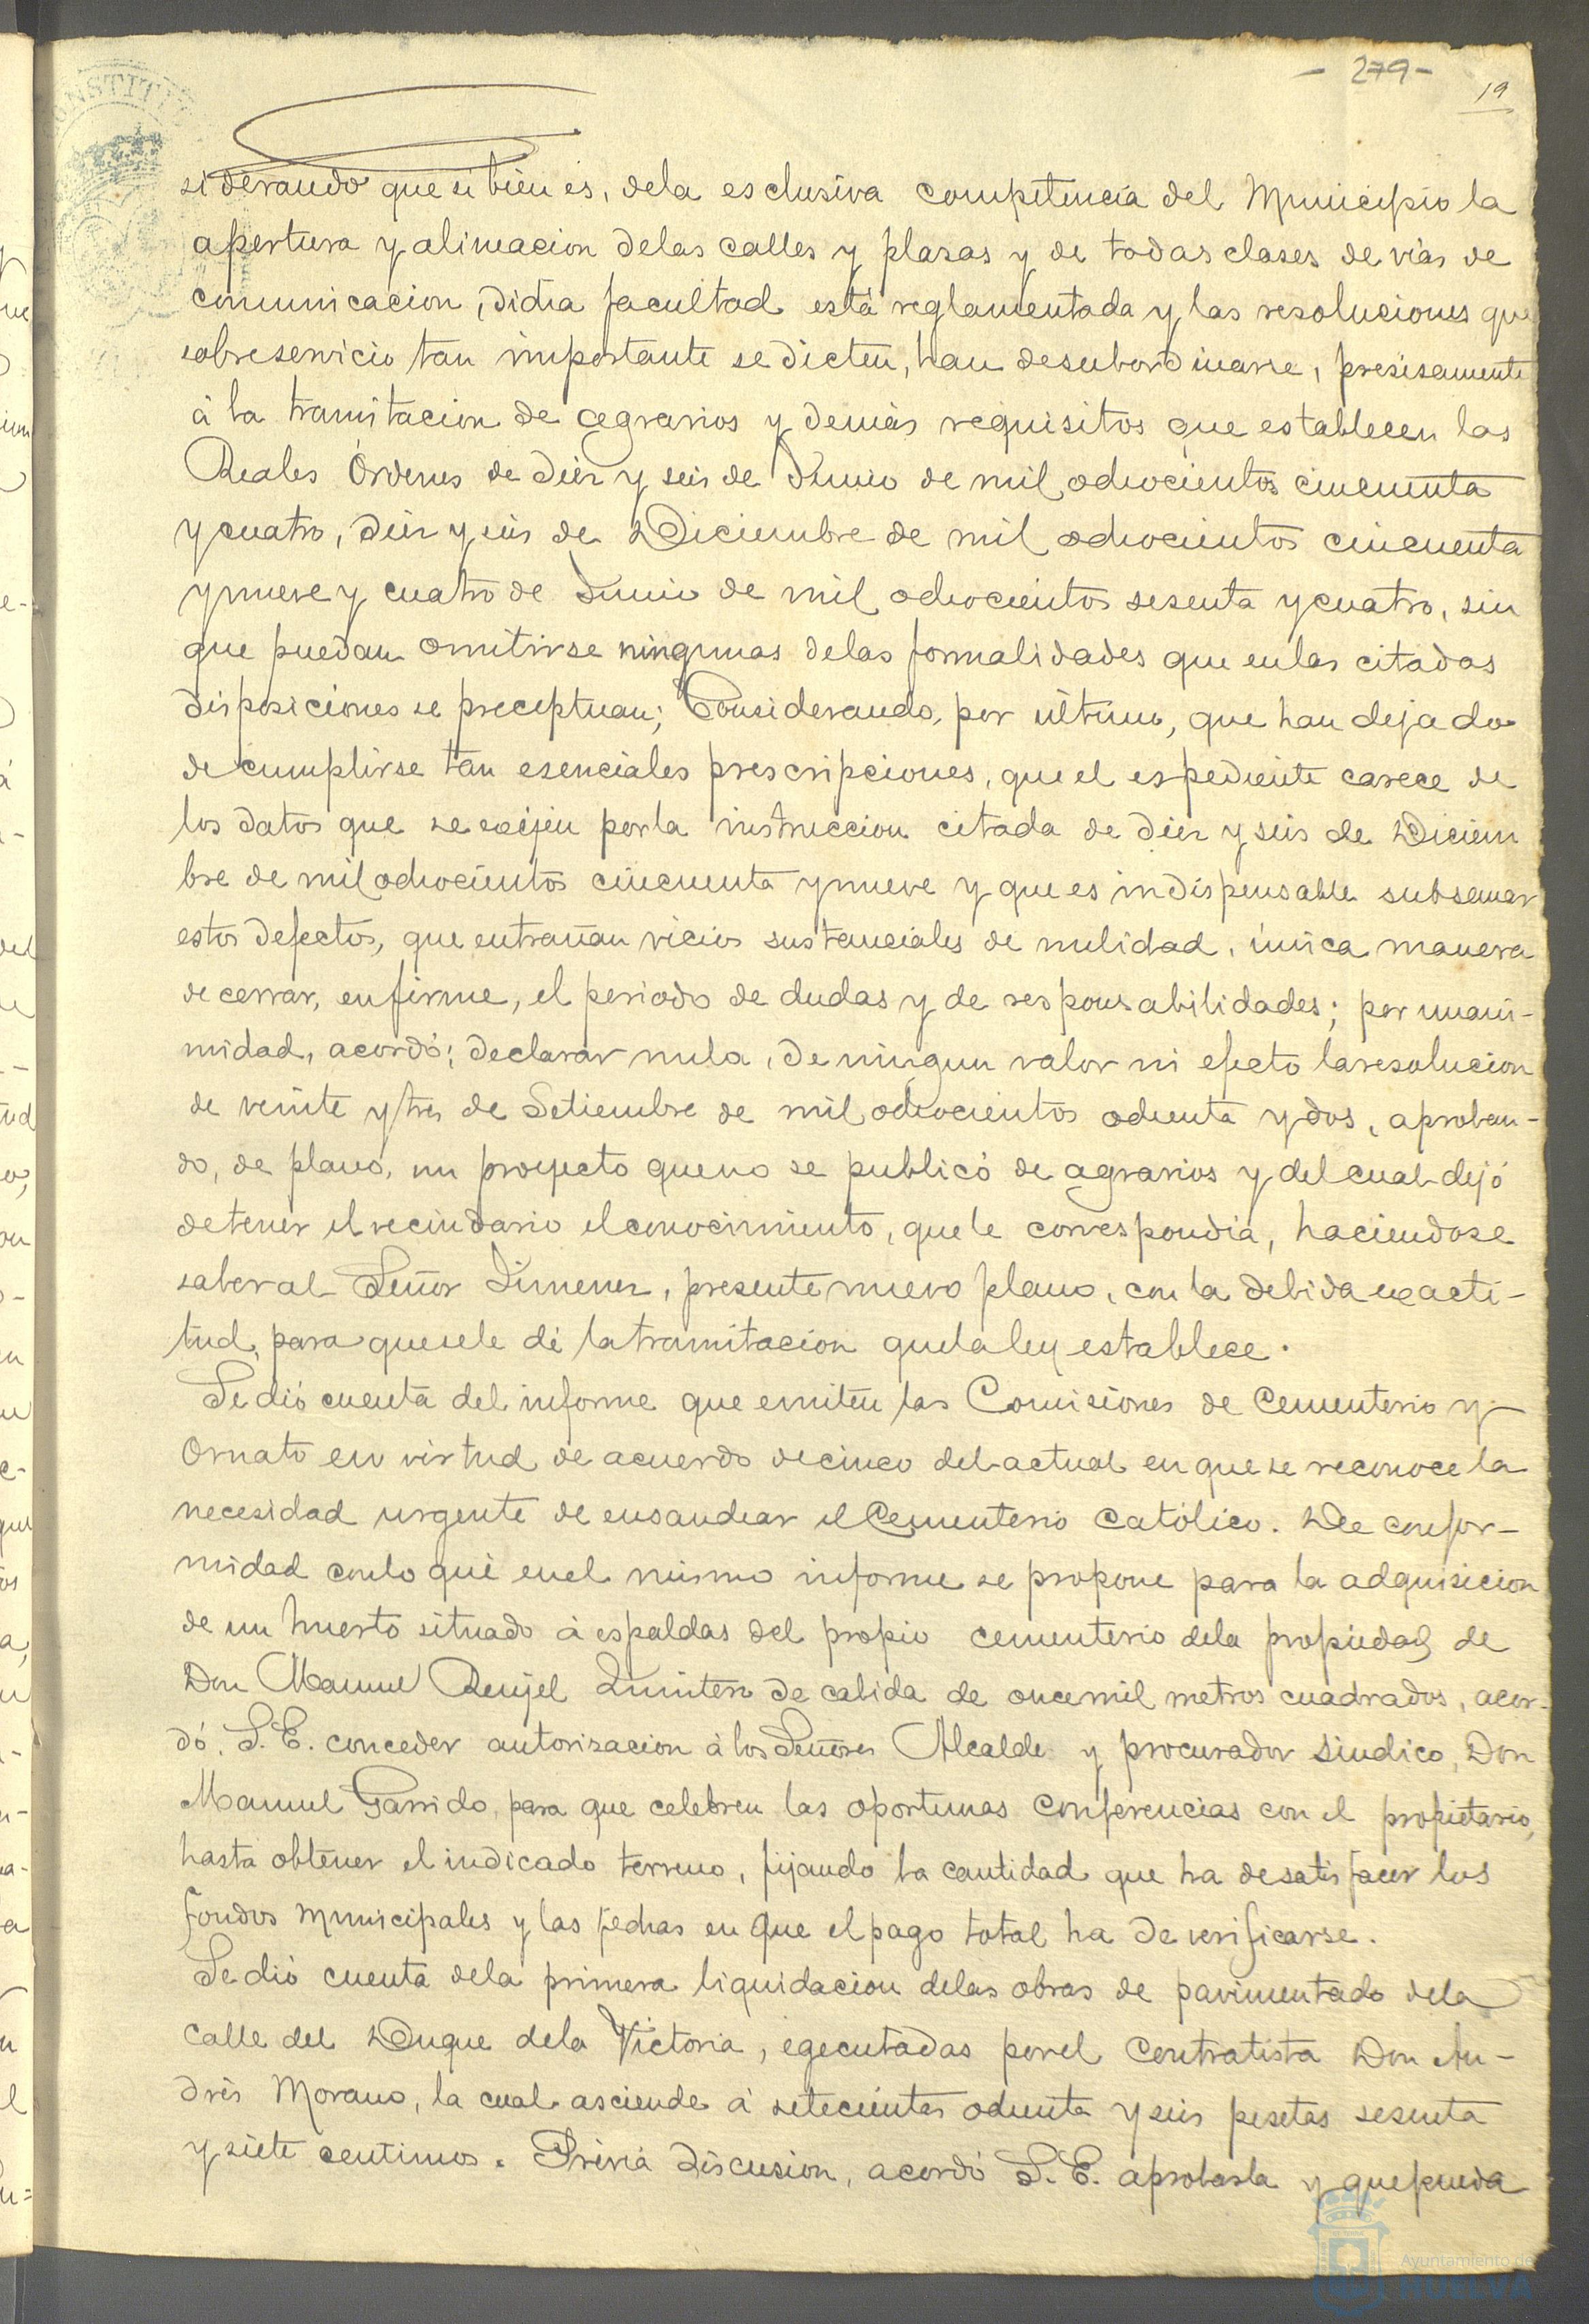 - 279 -
19
siderando que si bien es, dela esclusiva competencia del Municipio la
apertura y alineacion delas calles y plazas y de todas clases de vias de
comunicacion, dicha facultad está reglamentada y las resoluciones que
sobreservicio tan importante se dicten, han desubordinarse, presisamente
á la tramitacion de agravios y demás requisitos que establecen las
Reales Órdenes de diez y seis de Junio de mil ochocientos cincuenta
y cuatro, diez y seis de Diciembre de mil ochocientos cincuenta
y nueve y cuatro de Junio de mil ochocientos sesenta y cuatro, sin
que puedan omitirse ningunas delas formalidades que enlas citadas
disposiciones se preceptuan; Considerando, por último, que han dejado
de cumplirse tan esenciales prescripciones, que el espediente carece de
los datos que se exijen porla instruccion citada de diez y seis de Diciem
bre de mil ochocientos cincuenta y nueve y que es indispensable subsanar
estos defectos, que entrañan vicios sustanciales de nulidad, única manera
de cerrar, enfirme, el periodo de dudas y de responsabilidades; por unani-
midad, acordó; declarar nula, de ningun valor ni efecto laresolucion
de veinte y tres de Setiembre de mil ochocientos ochenta y dos, aproban-
do, de plano, un proyecto queno se publicó de agravios y del cual dejó
detener el vecindario elconocimiento, quele correspondia, haciendose
saber al Señor Jimenez, presente nuevo plano, con la debida exacti-
tud, para quesele dé latramitacion quelaley establece.
Se dió cuenta del informe que emiten las Comisiones de Cementerio y
Ornato en virtud de acuerdo decinco del actual en que se reconoce la
necesidad urgente de ensanchar el Cementerio Católico. De confor-
midad conlo que enel mismo informe se propone para la adquisicion
de un huerto situado á espaldas del propio cementerio dela propiedad de
Don Manuel Renjel Quintero de cabida de oncemil metros cuadrados, acor-
dó, S. E. conceder autorizacion á los Señores Alcalde y procurador Sindico, Don
Manuel Garrido, para que celebren las oportunas conferencias con el propietario,
hasta obtener el indicado terreno, fijando la cantidad que ha desatisfacer los
fondos municipales y las fechas en que el pago total ha de verificarse.
Se dió cuenta dela primera liquidacion delas obras de pavimentado dela
calle del Duque dela Victoria, egecutadas porel contratista Don An-
drés Morano, la cual asciende á setecientas ochenta y seis pesetas sesenta
y siete centimos. Prévia discusion, acordó S. E. aprobarla y quepueda
Ayuntamiento de
HUELVA